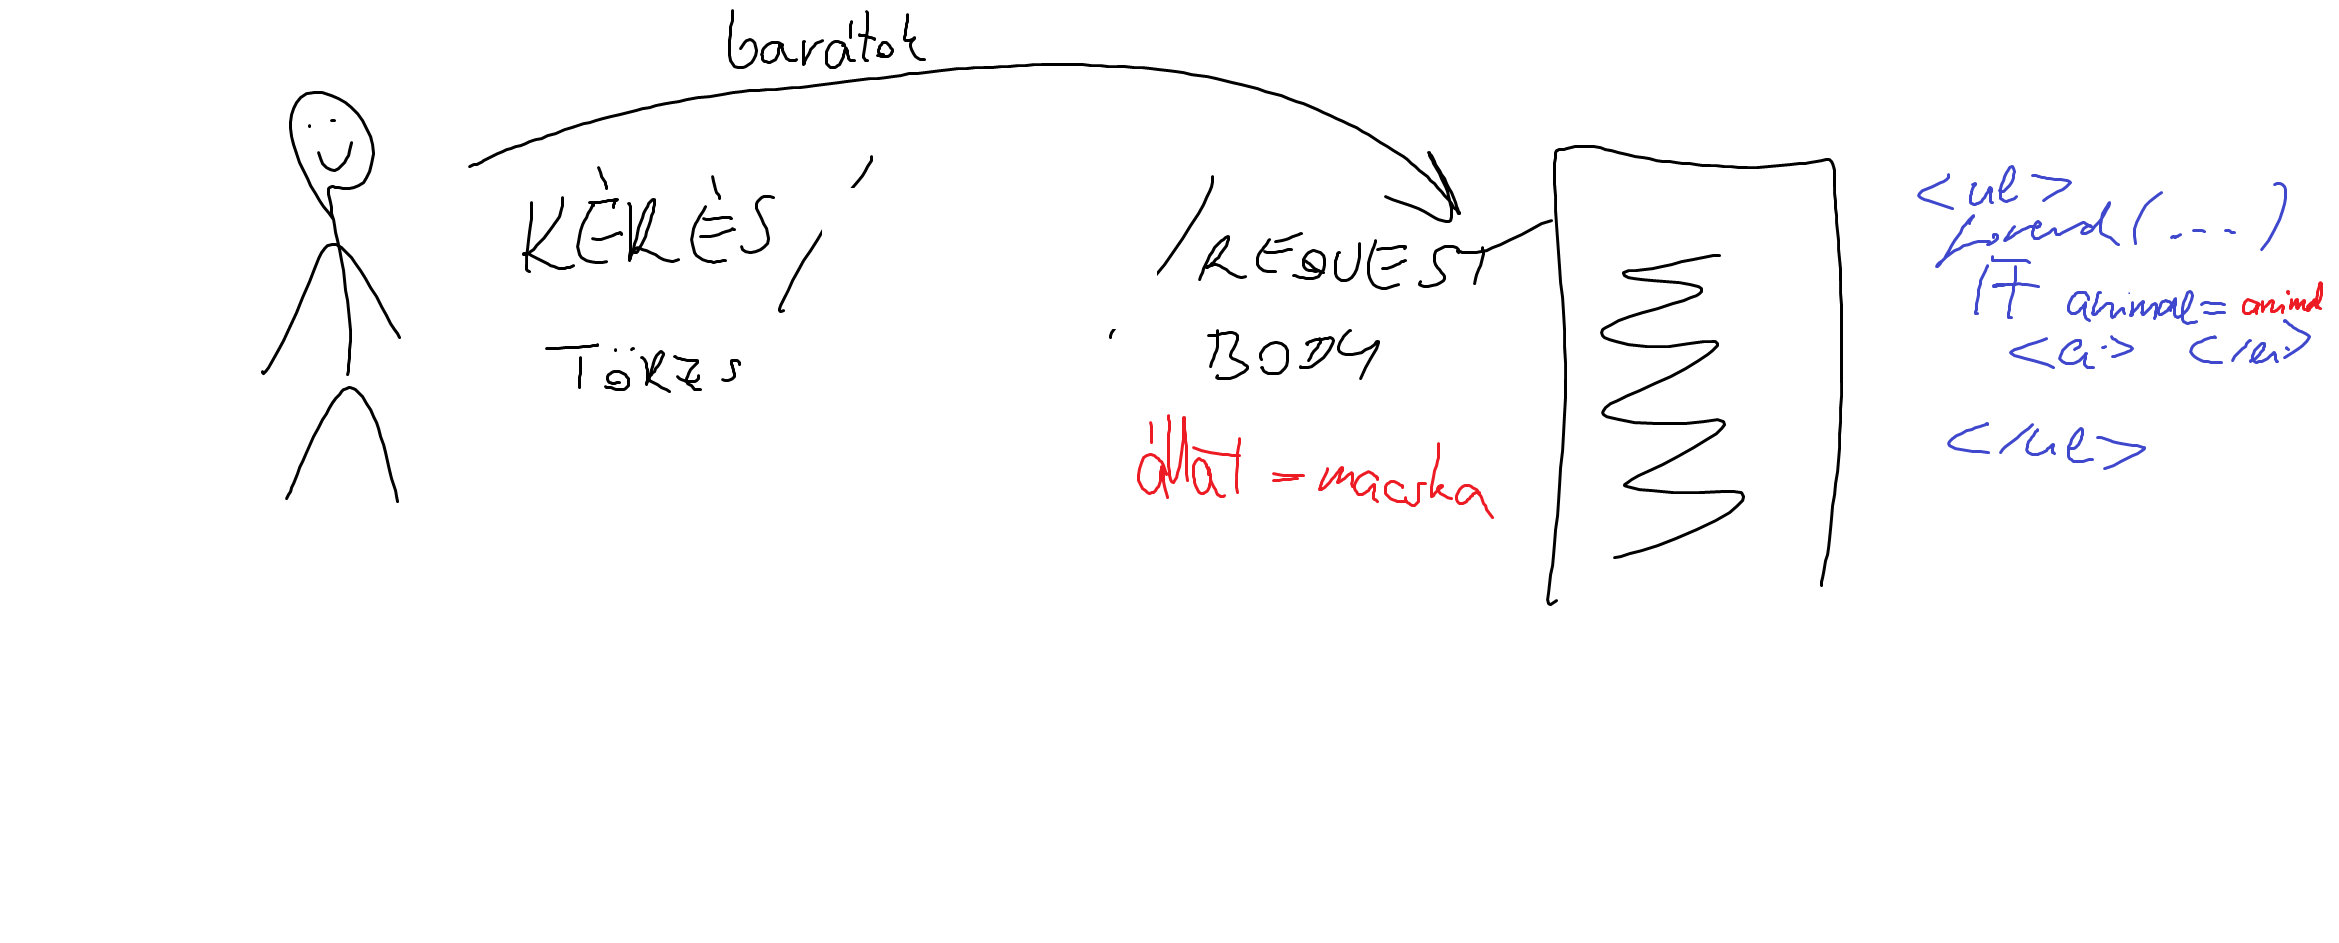 barátok
KÉRÉS /
/ REQUEST
TÖRZS
BODY
állat = macska
<ul>
foreach(...)
IF animal = animal
<a> </a>
</ul>